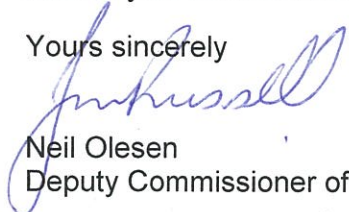 Yours sincerely
Neil Olesen
Deputy Commissioner of